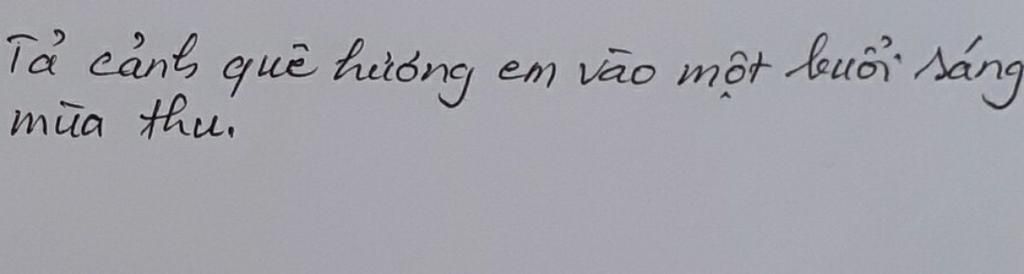 Tả cảnh quê hương em vào một buổi sáng
mùa thu.